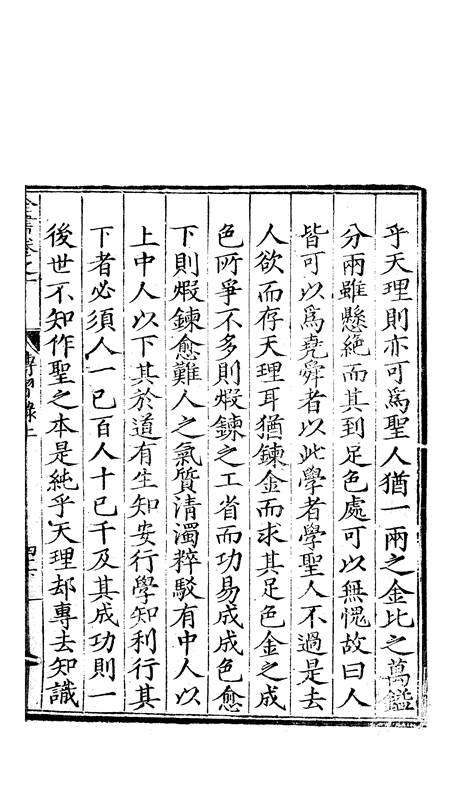 乎天理則亦可爲聖人猶一兩之金比之萬鎰
分兩雖懸絶而其到足色處可以無愧故曰人
皆可以爲堯舜者以此學者學聖人不過是去
人欲而存天理耳猶鍊金而求其足色金之成
色所爭不多則煅鍊之工省而功易成成色愈
下則煅鍊愈難人之氣質清濁粹駁有中人以
上中人以下其於道有生知安行學知利行其
下者必須人一己百人十己千及其成功則一
後世不知作聖之本是純乎天理却專去知識
全書卷之一
傳習錄上